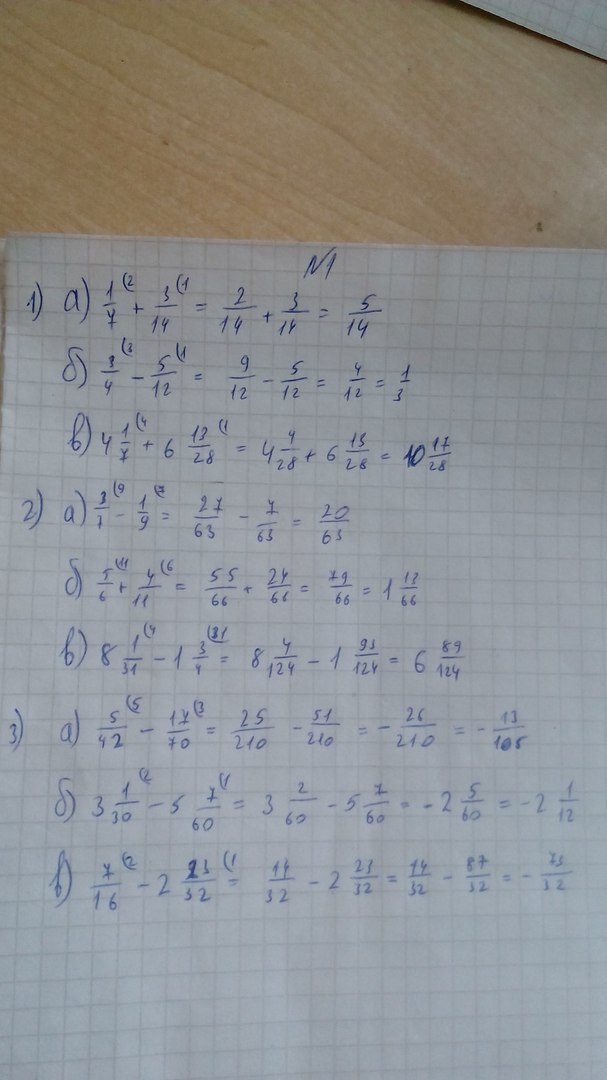 №1
1) а) 1/7 (2 + 3/14 (1 = 2/14 + 3/14 = 5/14
б) 3/4 (3 − 5/12 (1 = 9/12 − 5/12 = 4/12 = 1/3
в) 4 1/7 (4 + 6 13/28 (1 = 4 4/28 + 6 13/28 = 10 17/28
2) а) 3/7 (9 − 1/9 (7 = 27/63 − 7/63 = 20/63
б) 5/6 (11 + 4/11 (6 = 55/66 + 24/66 = 79/66 = 1 13/66
в) 8 1/31 (4 − 1 3/4 (31 = 8 4/124 − 1 93/124 = 6 89/124
3) а) 5/42 (5 − 17/70 (3 = 25/210 − 51/210 = − 26/210 = − 13/105
б) 3 1/30 (2 − 5 7/60 (1 = 3 2/60 − 5 7/60 = − 2 5/60 = − 2 1/12
в) 7/16 (2 − 2 23/32 (1 = 14/32 − 2 23/32 = 14/32 − 87/32 = − 73/32